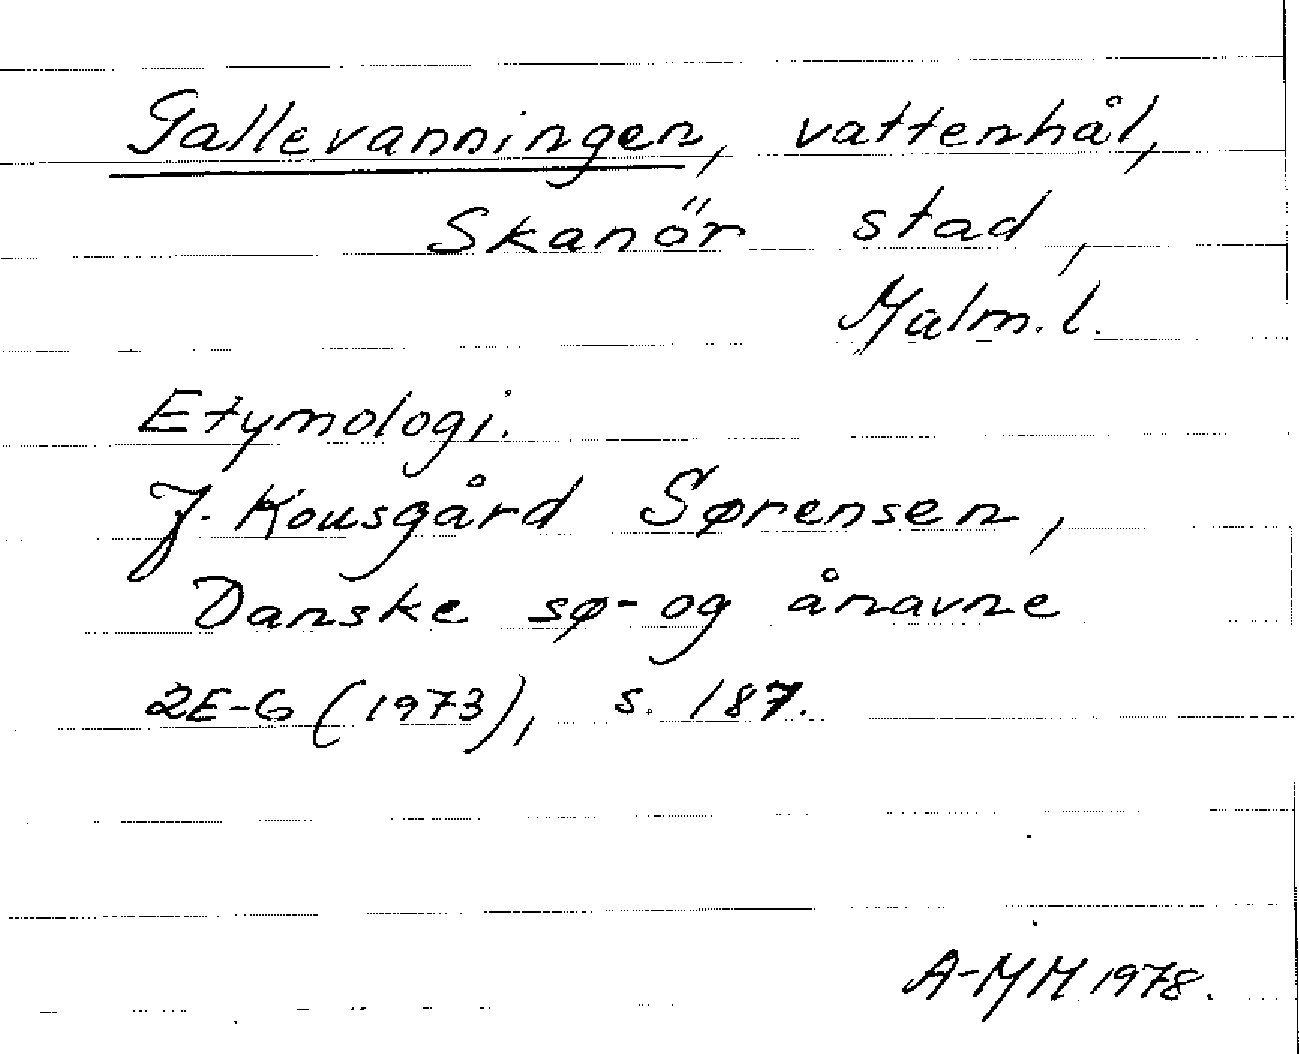 Gallevanningen, vattenhål,
Skanör stad,
Malm. l.
Etymologi.
J. Kousgård Sørensen,
Danske sø- og ånavne
2E-G (1973), s. 187.
A-MM 1978.